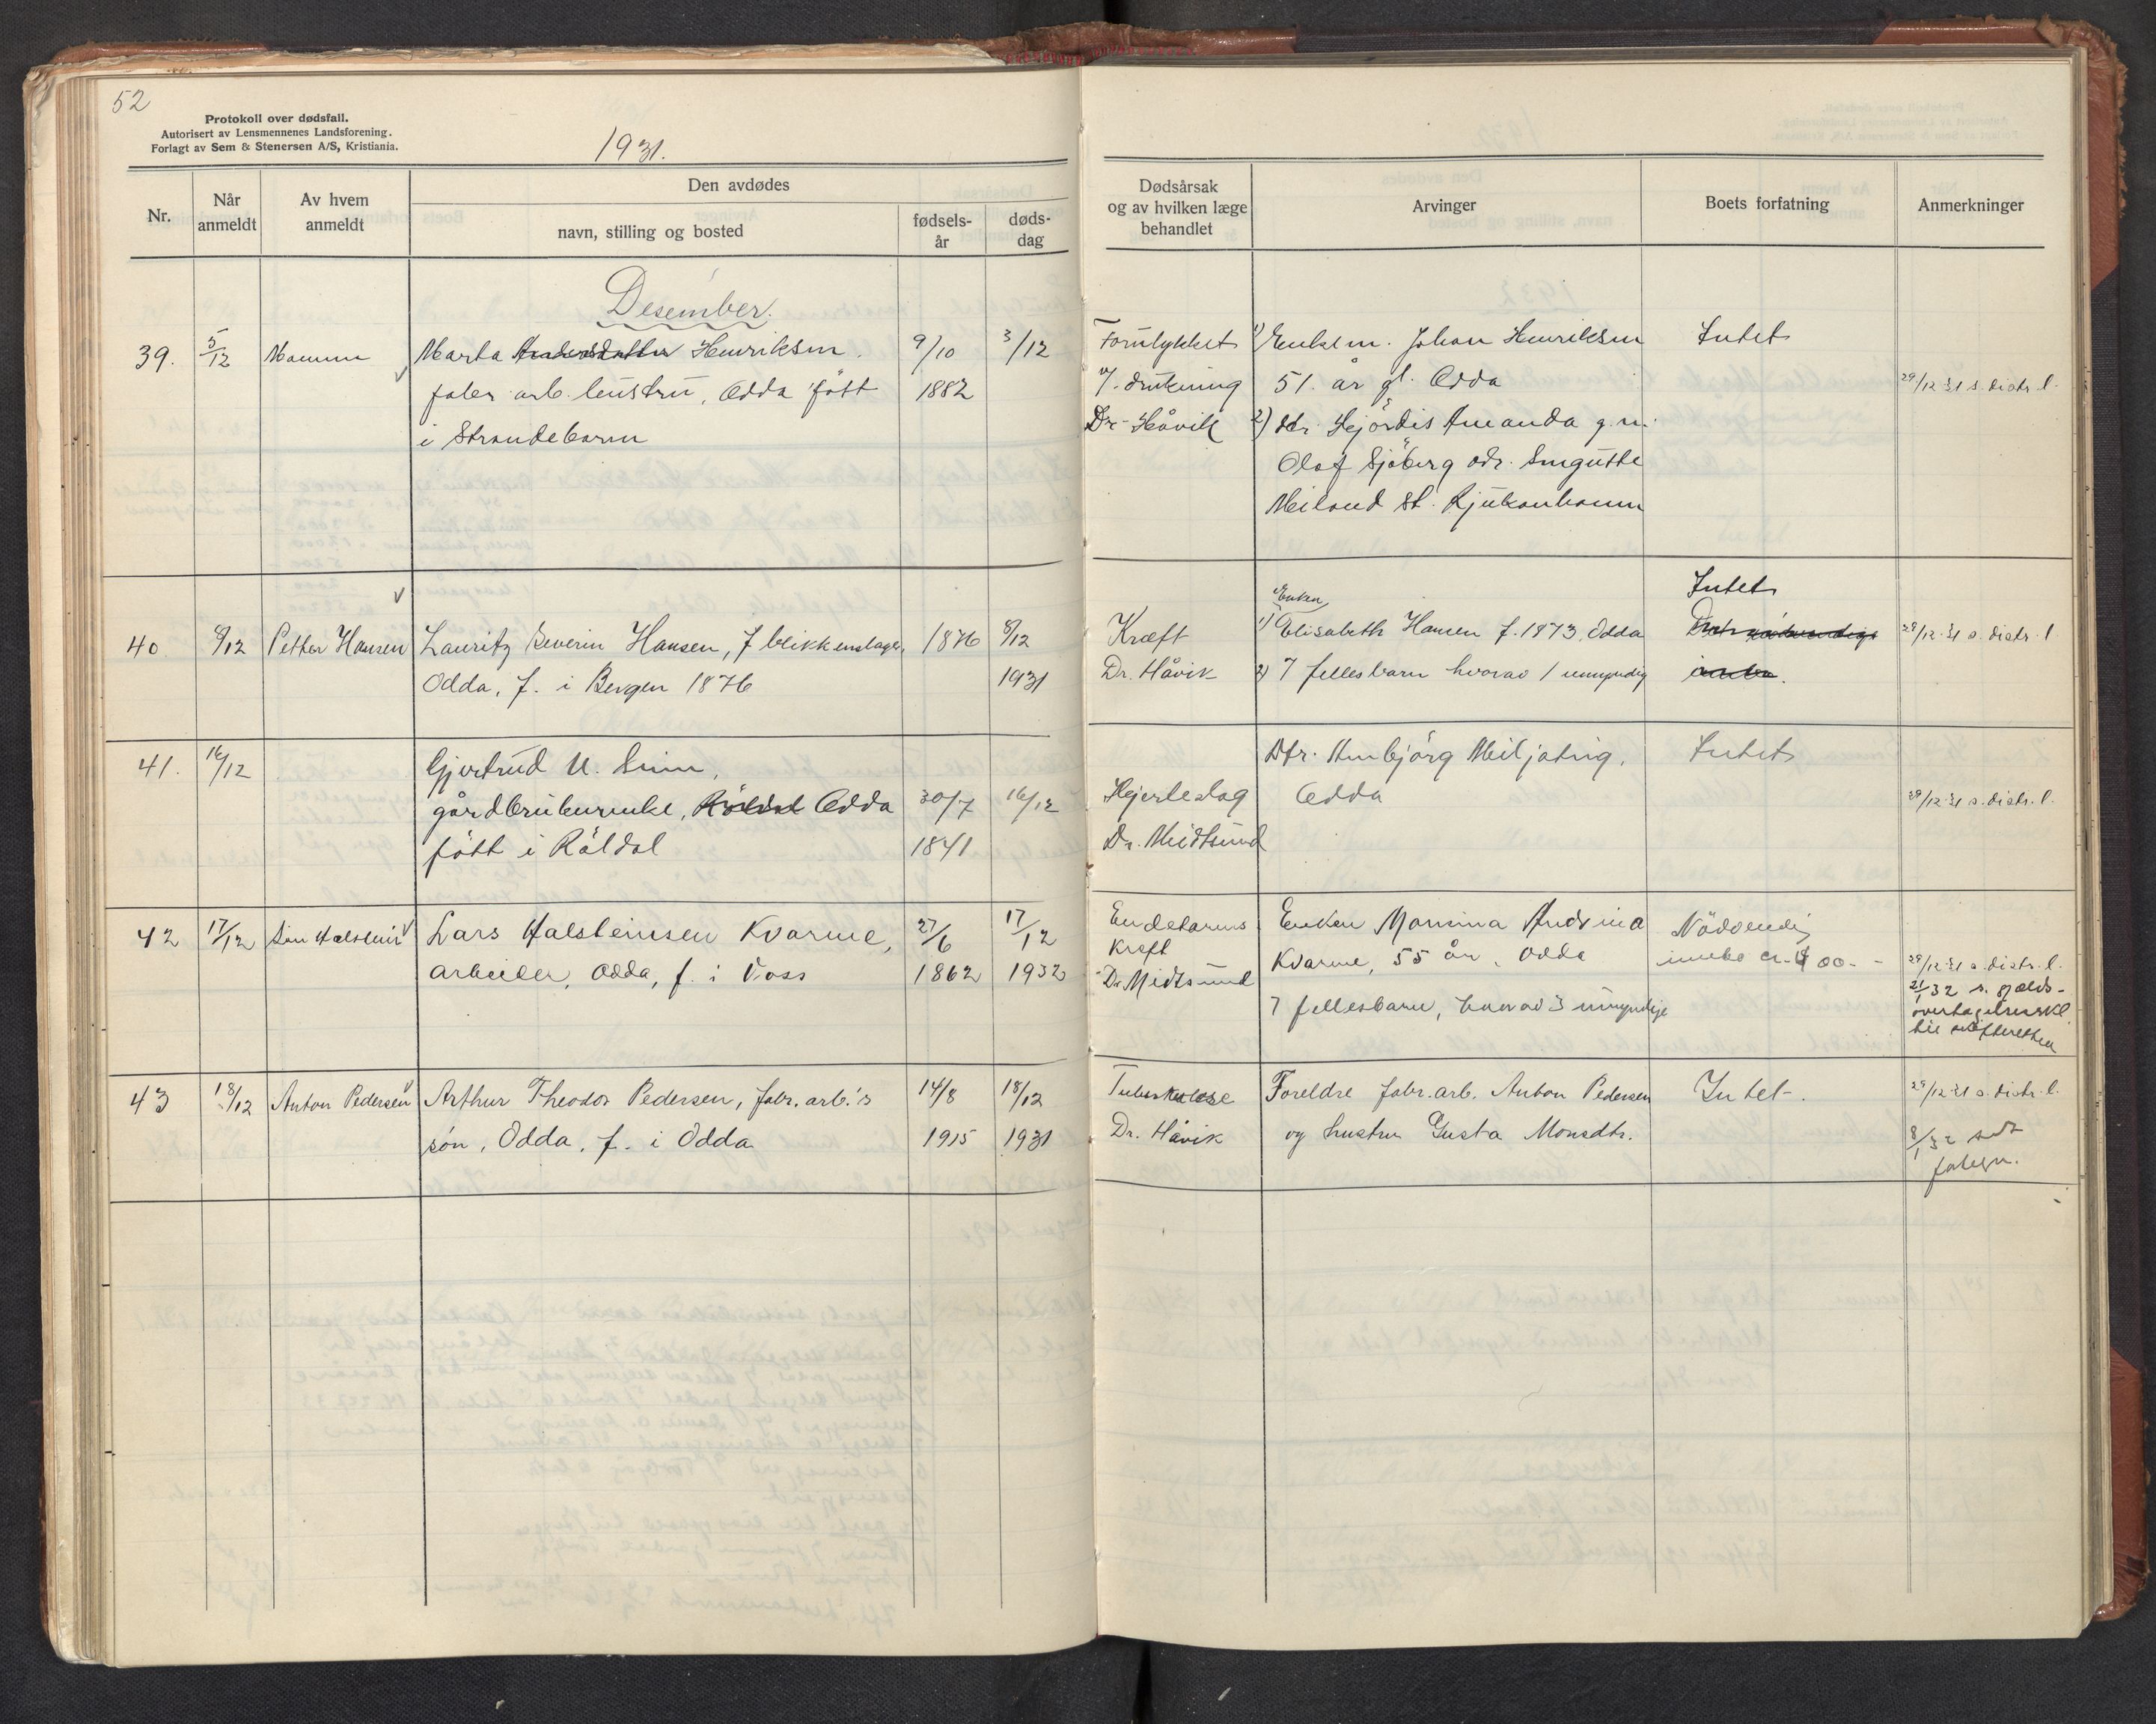 52
Protokoll over dødsfall.
Autorisert av Lensmennenes Landsforening.
Forlagt av Sem & Stenersen A/S, Kristiania.
1931.
Nr.
Når anmeldt
Av hvem anmeldt
Den avdødes
navn, stilling og bosted
fødsels-år
døds-dag
Dødsårsak og av hvilken læge behandlet
Arvinger
Boets forfatning
Anmerkninger
Desember.
39. 5/12 Mannen Marta Andersdatter Henriksen. 9/10 3/12
fabr. arb. hustru, Odda født 1882
i Strandebarm
Forulykket
v/. drukning
Dr. Håvik
1) Enkem. Johan Henriksen
51. år gl. Odda
2) dtr. Hjørdis Amanda g. m.
Olof Sjöberg adr.
Meiland st. Rjukanbanen
Intet
29/12 31 s. distr. l.
40 9/12 Petter Hansen Lauritz Severin Hansen, f blikkenslager, 1876 8/12
Odda, f. i Bergen 1876 1931
Kræft
Dr. Håvik
Enken
1) Elisabeth Hansen f. 1873, Odda
2) 7 fellesbarn hvorav 1 umyndig
Intet
Det nødvendige
indbo.
29/12 31 s. distr. l
41. 16/12 Gjertrud U.
gårdbrukerenke, Röldal Odda 30/7 16/12
født i Röldal 1841
Hjerteslag
Dr. Meidtsund
Dtr. Anbjörg
Odda
Intet
29/12 31 s. distr. l.
42 17/12 Lars Halsteinsen Kvarme, 27/6 17/12
arbeider, Odda, f. i Voss 1862 1932
Endetarms
kreft
Dr. Midtsund
Enken Monsina Andrina
Kvarme, 55 år, Odda
7 fellesbarn, hvorav 3 umyndige
Nödvendig
innbo
29/12 31 s. distr. l.
21/1 32 s. gjelds-
overtagelseserkl
til skifteretten
43 18/12 Anton Pedersen Arthur Theodor Pedersen, fabr. arb.'s 14/8 18/12
søn, Odda, f. i Odda 1915 1931
Tuberkulose
Dr. Håvik
Foreldre fabr. arb. Anton Pedersen
og hustru Gusta Monsdtr.
Intet.
29/12 31 s. distr. l.
8/1 32